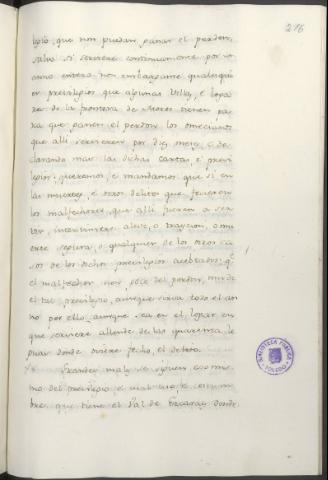 216
legio, que non puedan ganar el perdon,
salvo si sirviere continuamente por un
anno entero non embargante qualesqui
er previlegios que algunas Villas, e loga
res de la frontera de Moros tienen pa
ra que ganen el perdon los omecianos
que alli sirvieren por diez meses, e de
clarando mas las dichas cartas, e previ
legios, queremos, e mandamos que si en
las muertes, e otros delitos que ficieron
los malfechores, que alli fueren a ser
vir, interviniere aleve, o traycion, o mu
erte segura, o qualquier de los otros ca
sos de los dichos previlegios aceptados, qe
el malfechor non goce del perdon, nin de
el tal previlegio, aunque sirva todo el an
no por ello, aunque sea en el logar en
que serviere allende de las quarenta le
guas donde oviere fecho, el delito.
Grandes males se siguen eso mes
mo del previlegio, e mal uso, e costum
bre, que tiene el Val de Ezcaray, donde
BIBLIOTECA PUBLICA
TOLEDO